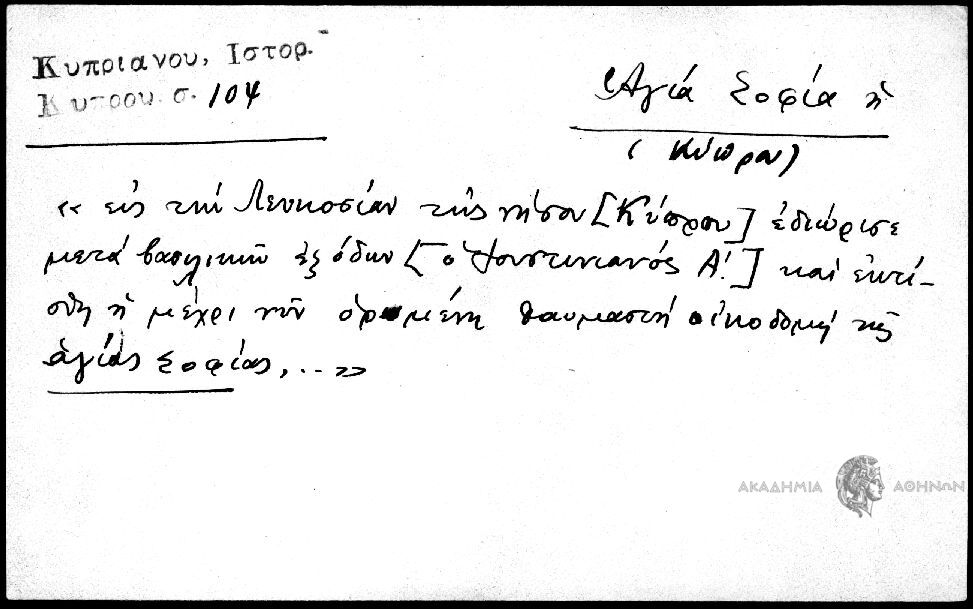 Κυπριανου, Ιστορ.
Κυπρου. σ. 104
Ἁγιά Σοφία ἡ
(Κύπρου)
« εἰς τὴν Λευκοσίαν τῆς νήσου [Κύπρου] ἐδιώρισε
μετά βασιλικῶν ἐξόδων [ὁ Ἰουστινιανός Α!] καὶ ἐκτί-
σθη ἡ μέχρι νῦν ὁρωμένη θαυμαστή οἰκοδομή τῆς
ἁγίας Σοφίας, ... »
ΑΚΑΔΗΜΙΑ ΑΘΗΝΩΝ